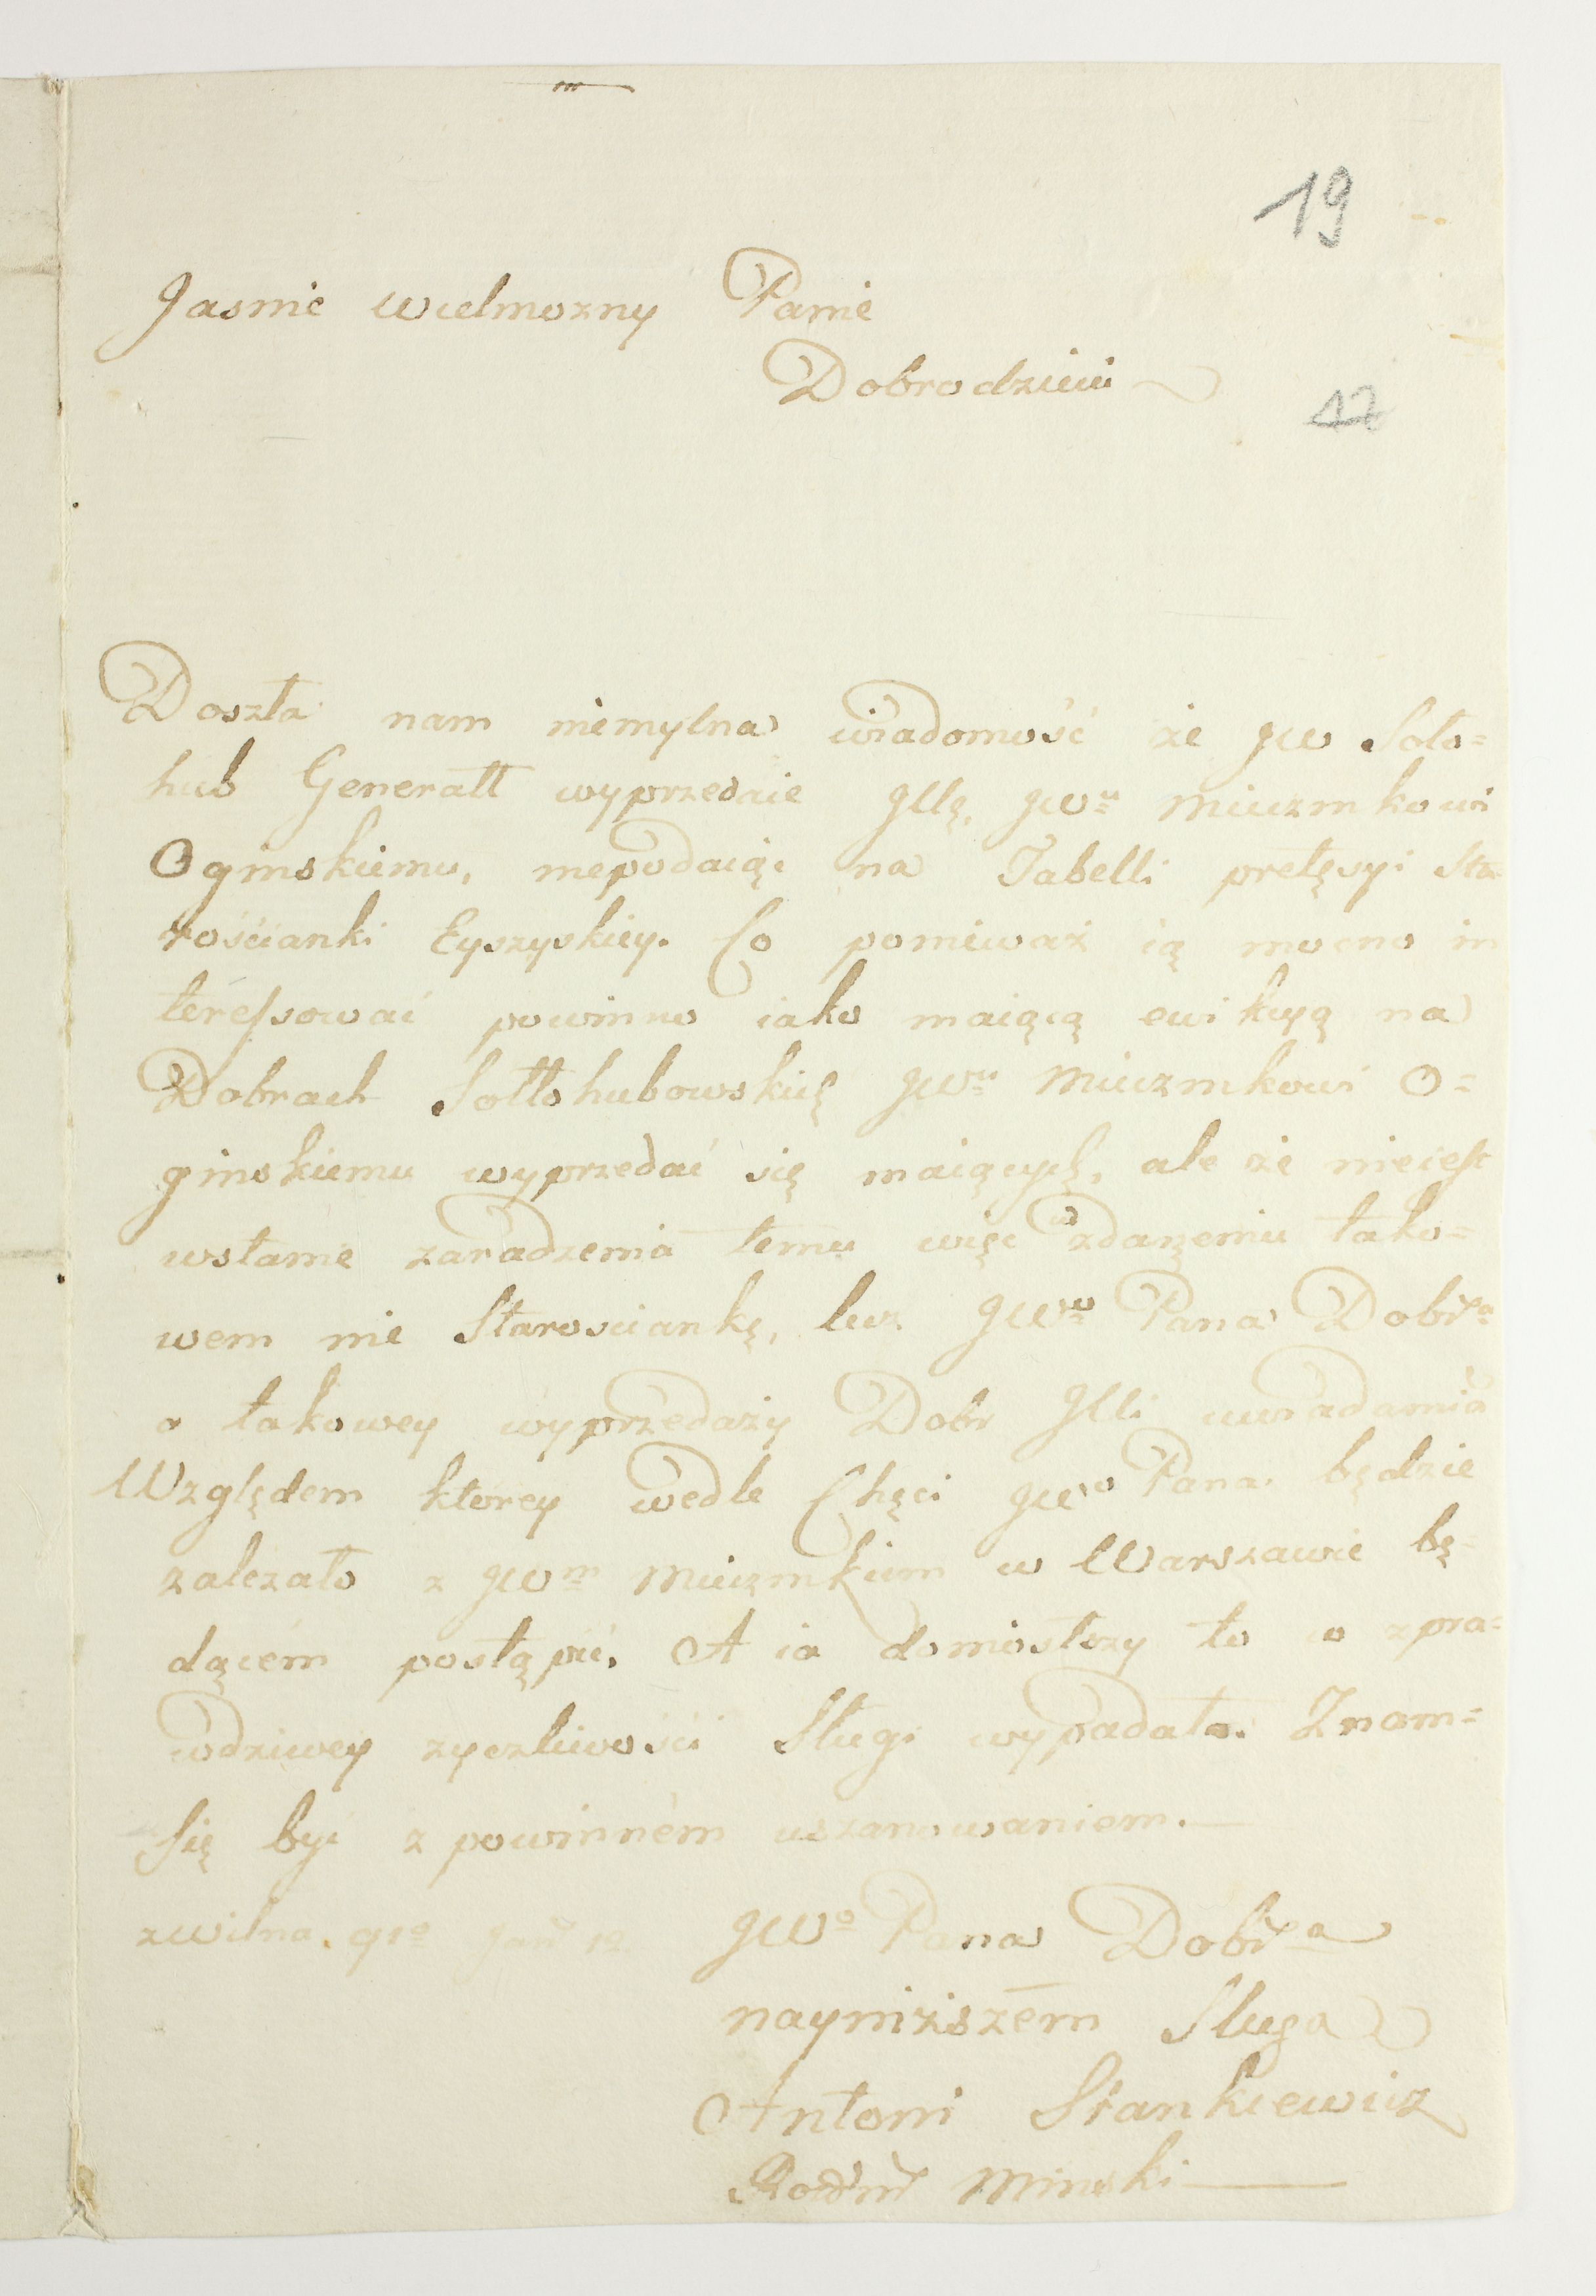 19
Jasnie wielmozny Panie
Dobrodzieiu
17
Doszła nam niemylna wiadomość że JW Soło=
hub Generałł wyprzedaie Jllę, JWu Miecznikowi
Oginskiemu, niepodaiąc na Tabelli pretęsyi Sta
rościanki Łyszyskiey. Co poniewaź ią mocno in
téressować powinno iako maiącą ewikcyą na
Dobrach Sołłohubowskich JWu Miecznikowi O=
ginskiemu wyprzedać się maiących, ale że nieiest
wstanie zaradzenia temu więc w zdarzeniu tako=
wem nie Starosciankę, lecz JWo Pana Dobra
o takowey wyprzedaży Dobr Jlli uwiadamia
Względem ktorey wedle Chęci JWo Pana będzie
zalezało z JWm Miecznikiem w Warszawie bę=
dącém postąpić. A ia doniosłszy to co z pra=
wdziwey zyczliwości Sługi wypadało. Znam=
Się być z powinném uszanowaniem.
zwilna. 91o Janu 12
JWo Pana Dobra
nayniższém Sługa
Antoni Stankiewicz
Minski